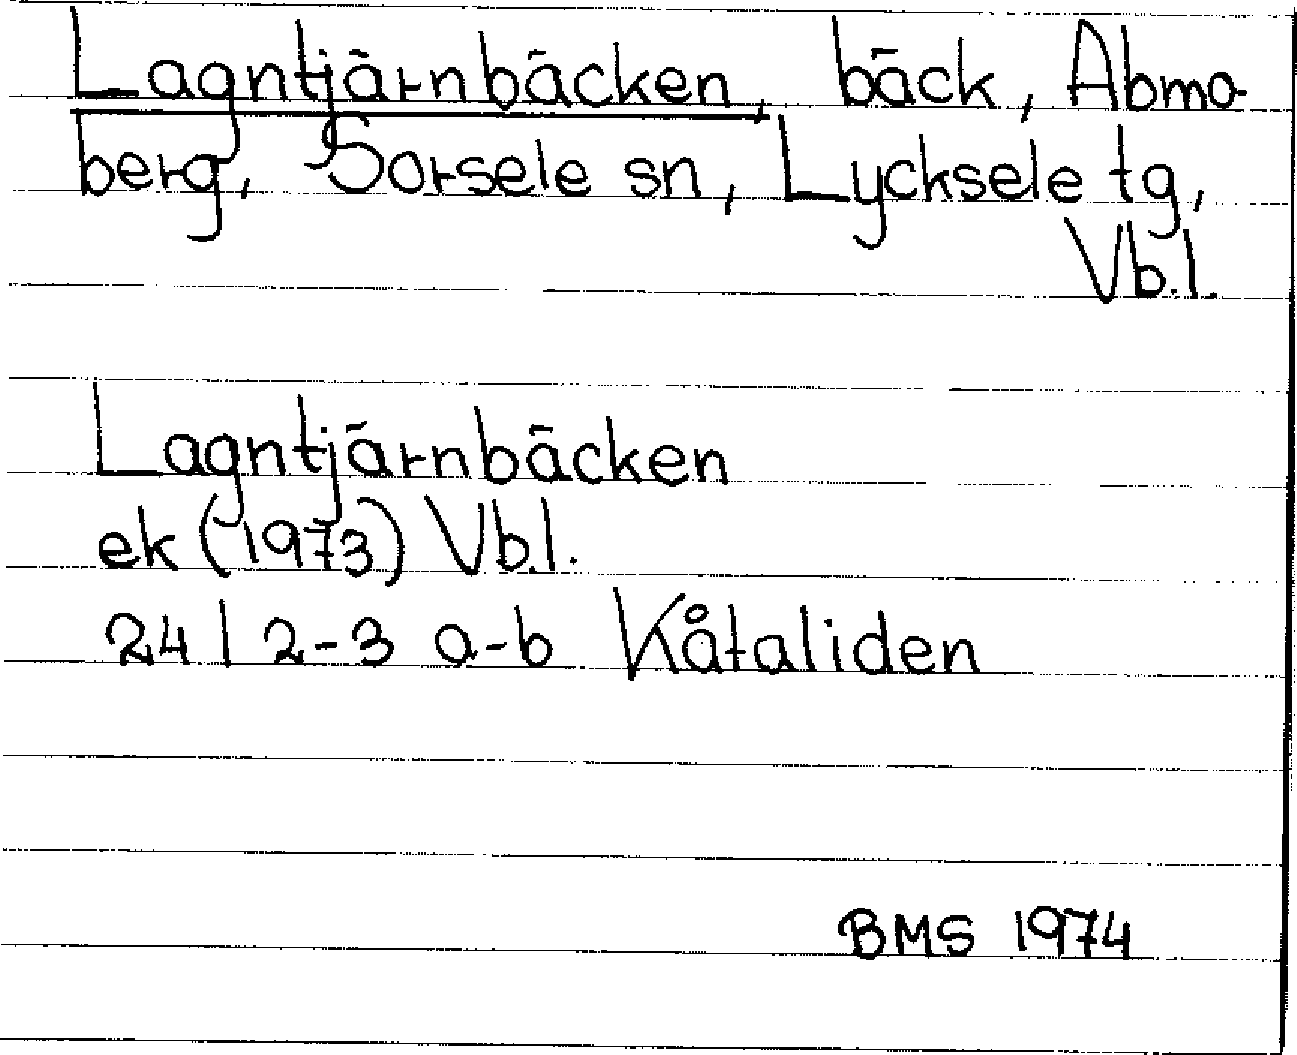 Lagntjärnbäcken, bäck, Abmo-
berg, Sorsele sn, Lycksele tg,
Vb.l.
Lagntjärnbäcken
ek (1973) Vb.l.
24 I 2-3 a-b Kåtaliden
BMS 1974